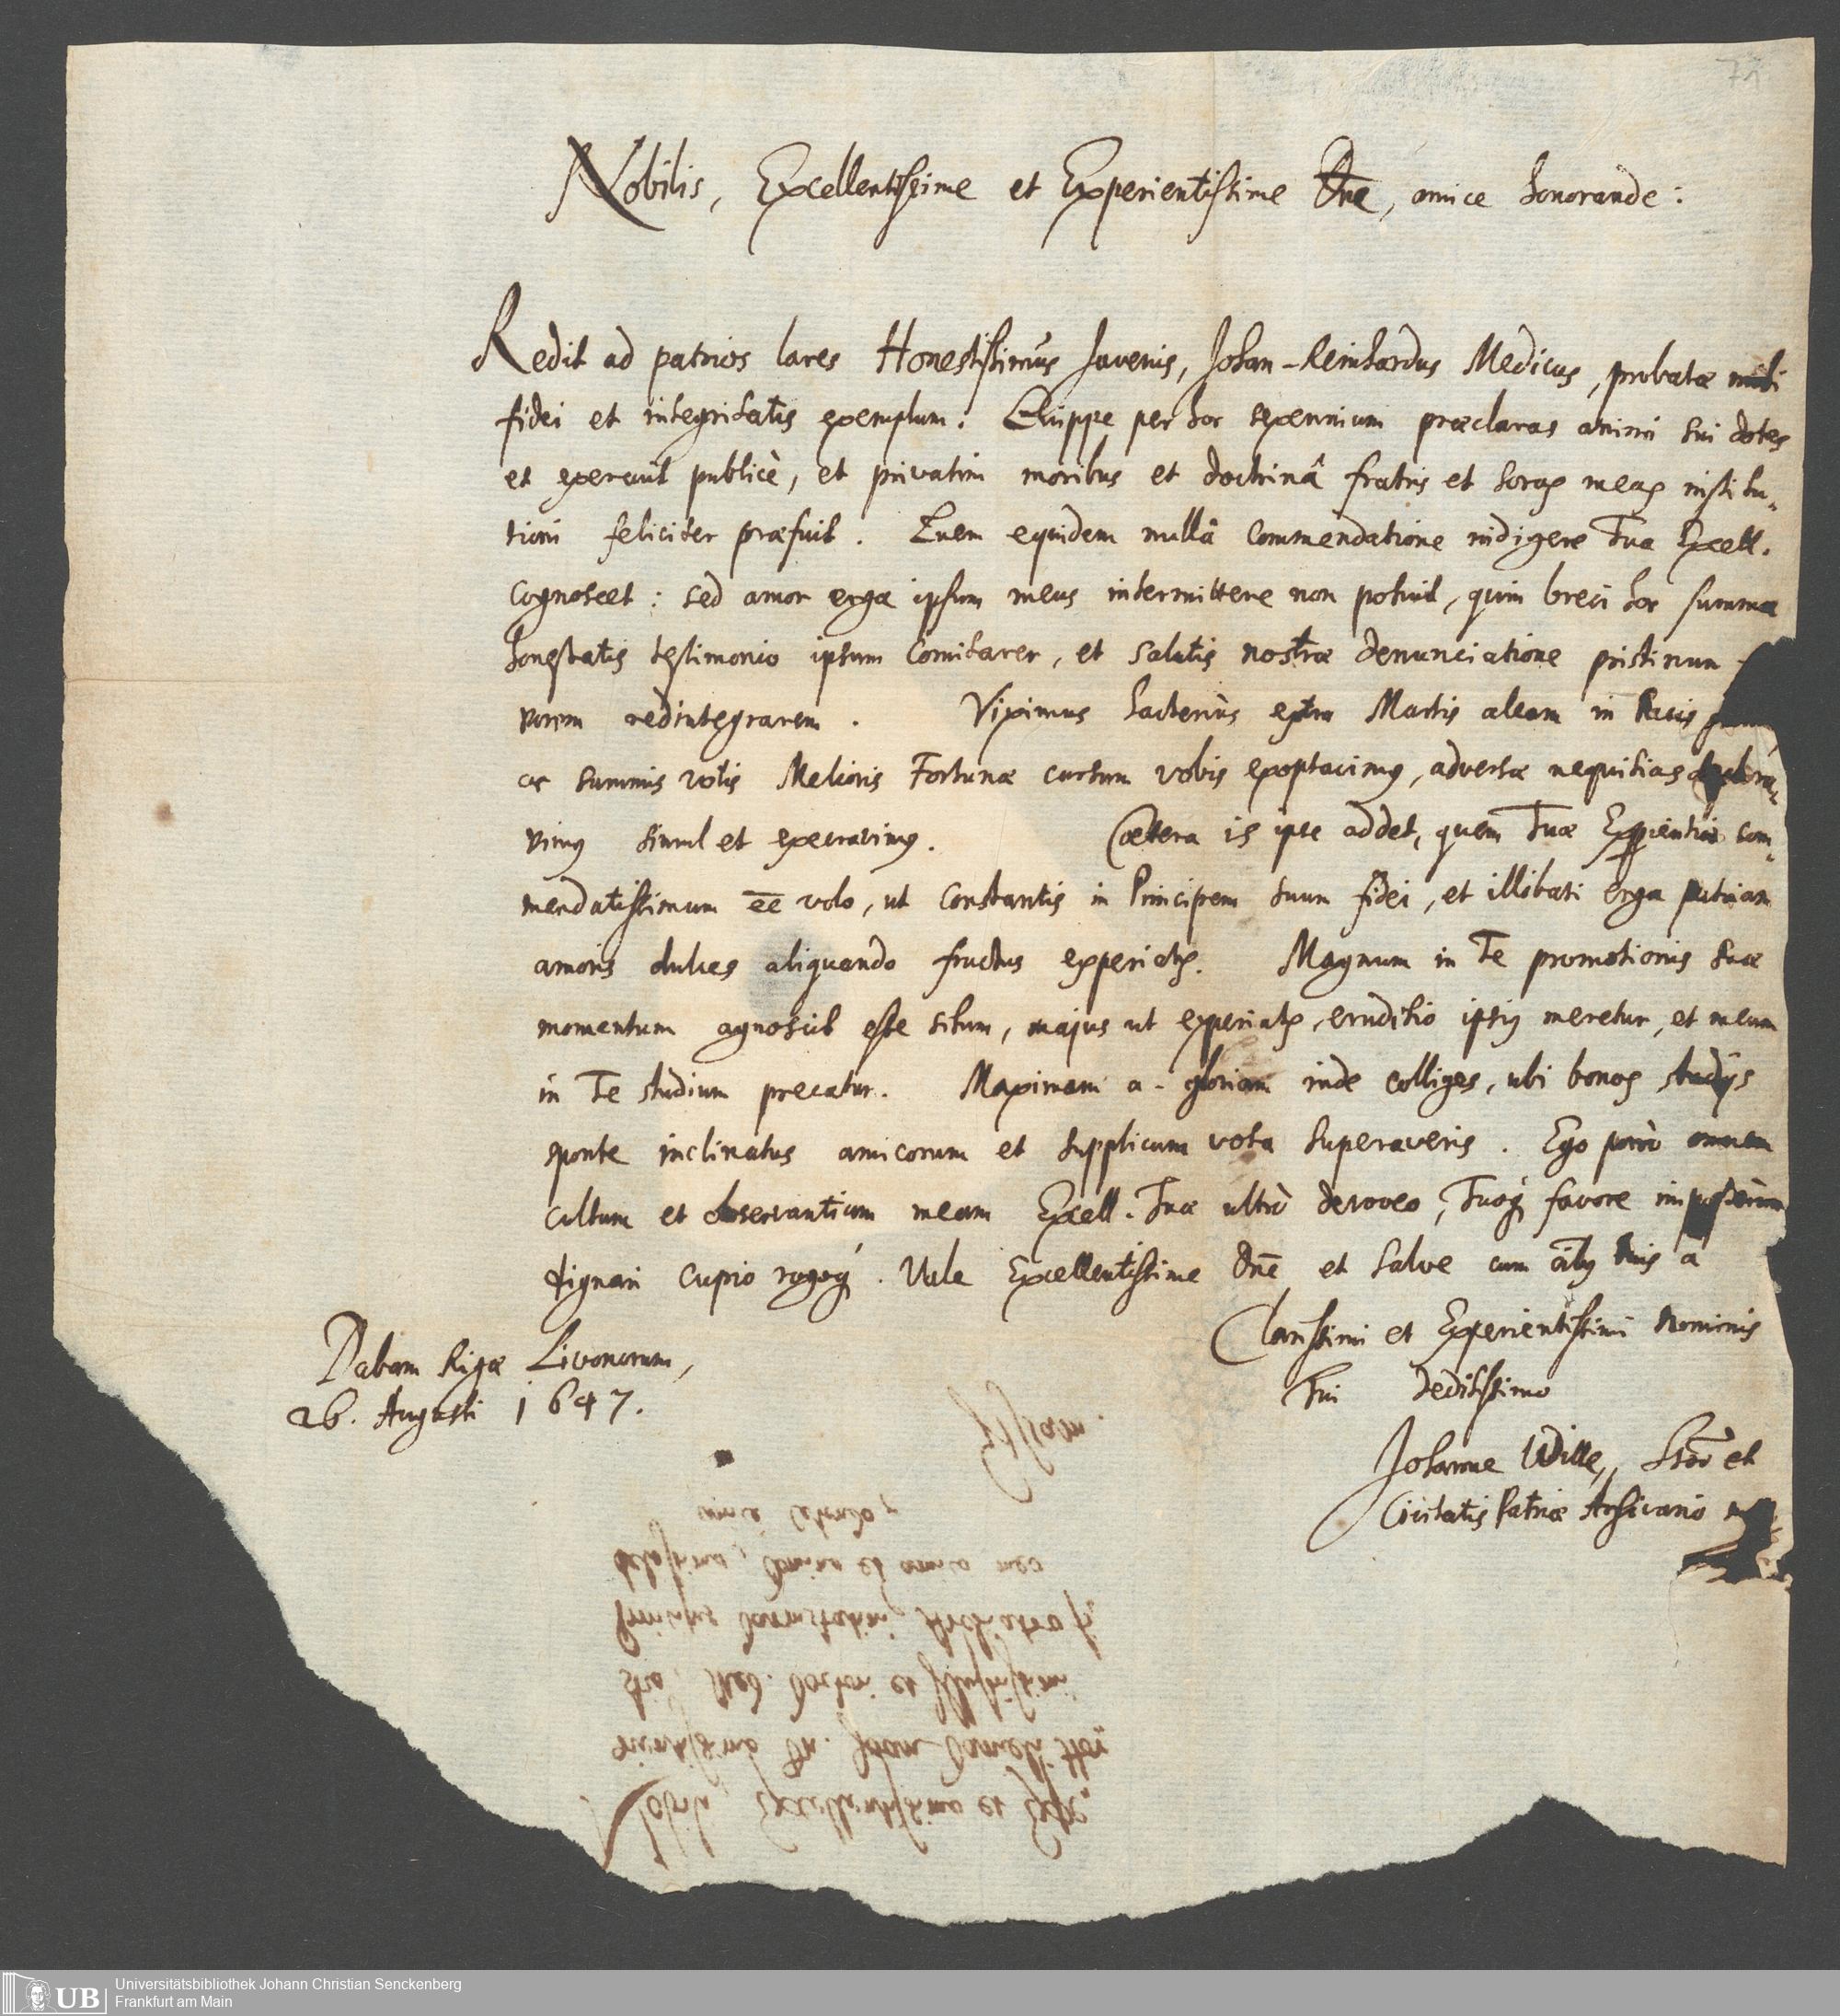 71
Nobilis, Excellentissime et Experientissime Dne, amice honorande:
Redit ad patrios lares Honestissimus Juvenis, Johan-Reinhardus Medicus, probatæ mihi
fidei et integritatis exemplum. Quippe per hoc sexennium præclaras animi sui dotes
et exercuit publicè, et privatim moribus et doctrinâ fratris et soroꝝ meaꝝ institu-
tioni feliciter præfuit. Quem equidem nullâ commendatione indigere Tua Excell.
cognoscet: sed amor ergæ ipsum meus intermittere non potuit, quin brevi hoc summæ
honestatis testimonio ipsum comitarer, et salutis nostræ denunciatione pristinum
vorem redintegrarem. Viximus hactenùs extra Martis aleam in Pacis
ac summis votis Melioris Fortunæ cursum vobis exoptavimꝰ, adversæ nequitias
vimꝰ simul et execravimꝰ. Cætera is ipse addet, quem Tuæ Exꝑientiæ com-
mendatissimum ēē volo, ut constantis in Principem suum fidei, et illibati erga patriam
amoris dulces aliquando fructus experiatꝝ. Magnum in Te promotionis suæ
momentum agnoscit esse situm, majus ut experiatꝝ, eruditio ipsiꝰ meretur, et meum
in Te studium precatur. Maximam a. gloriam inde colliges, ubi bonoꝝ studijs
sponte inclinatus amicorum et supplicum vota superaveris. Ego porrò omnem
cultum et observantiam meam Excell. Tuæ ultrò devoveo, Tuoq́ favore imposterum
dignari cupio rogoq́. Vale Excellentissime Dn̄e et salve cum oībꝰ tuis a
Clarissimi et Experientissimi Nominis
Tui deditissimo
Dabam Rigæ Livonorum,
26. Augusti 1647.
Johanne Wille,
Civitatis Patriæ Archivario
Nobili, Excellentissimo et Expe-
rientissimo Dn. Johan Danieli Hor-
stio, Med. Doctori et Illustrissimi
Principis Darmstatini, Archiatro
Domino et amico meo
Giessam.
UB
Universitätsbibliothek Johann Christian Senckenberg
Frankfurt am Main